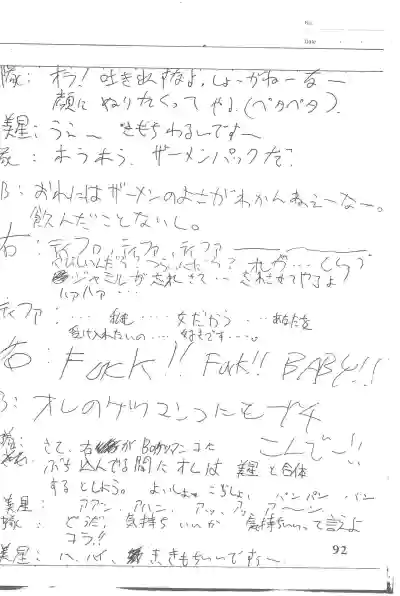 No.
Date
隊: オラ!吐き出すなよ、しょーがねーなー
顔にぬりたくってやる(ペタペタ)。
美星: うえ〜 きもちわるいですー
隊: ホラホラ、ザーメンパックだ?
B: おれにはザーメンのよさがわかんねえーなー。
飲んだことないし。
右: ティファ、ティファ、ティファ
さびしいんだろ?つらいんだろ?オレが…
ジャミルが忘れさせて…忘れさせてやるよ
ハァハァ…
ティファ: … 私も… 女だから …あなたを
受け入れたいの… 好きです…。
右: FUCK!! Fuck!! BABY!!
B: オレのゲリマンコにもブチ
こんでー!!
隊: さて、右がBのゲリマンコに
ぶち込んでる間にオレは 美星と合体
するとしよう。よいしょ、こらしょ、パンパンパン
美星: アアン、アハン、アッ、アッ、アーン
隊: どうだ、気持ちいいか 気持ちいいって言えよ
コラ!!
美星: ハ、ハイ、き、きもちいいですぅ〜
92